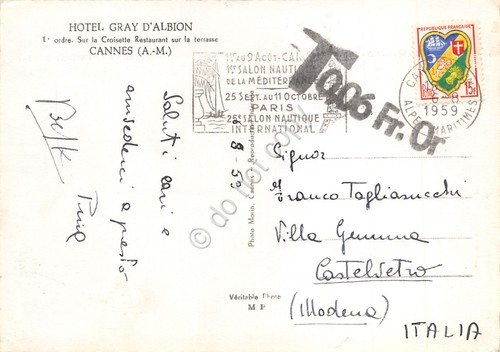 HOTEL GRAY D'ALBION
1er ordre. Sur la Croisette Restaurant sur la terrasse
CANNES (A.-M.)
1er au 9 AOÛT-CAN
1er SALON NAUTI
DE LA MÉDITERRANÉE
25 SEPT. AU 11 OCTOBRE
PARIS
25e SALON NAUTIQUE
INTERNATIONAL
T 0.06 Fr. Or
REPUBLIQUE FRANÇAISE
15F
1959
ALPES MARITIMES
8-59
Saluti cari e
arrivederci a presto
Pina
Signor
Franco Tagliasucchi
Villa Gemma
Castelvetro
(Modena)
ITALIA
Photo Morin, Cannes - Reproduction
Véritable Photo
M P
do not copy